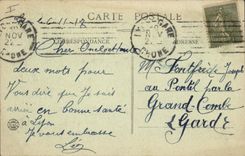 CARTE POSTALE
LYON GARE
RHONE
NOV
Le 6-11-17
CORRESPONDANCE
Cher
deux mots pour
Vous dire que je suis
arrivé en bonne santé
à Lyon
Je vous embrasse
Mr Fontfreide Joseph
au Pontil par la
Grand-Combe
Gard